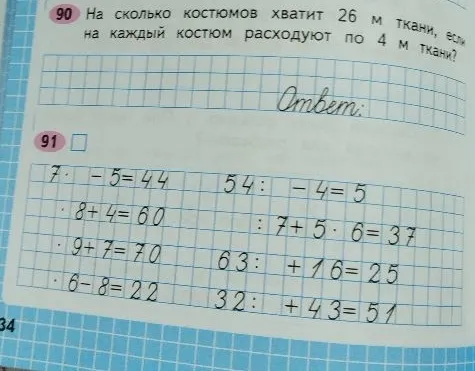 90 На сколько костюмов хватит 26 м ткани, если
на каждый костюм расходуют по 4 м ткани?
Ответ:
91
7· - 5 = 44 54 : - 4 = 5
· 8 + 4 = 60 : 7 + 5 · 6 = 37
· 9 + 7 = 70 63 : + 16 = 25
· 6 - 8 = 22 32 : + 43 = 51
34